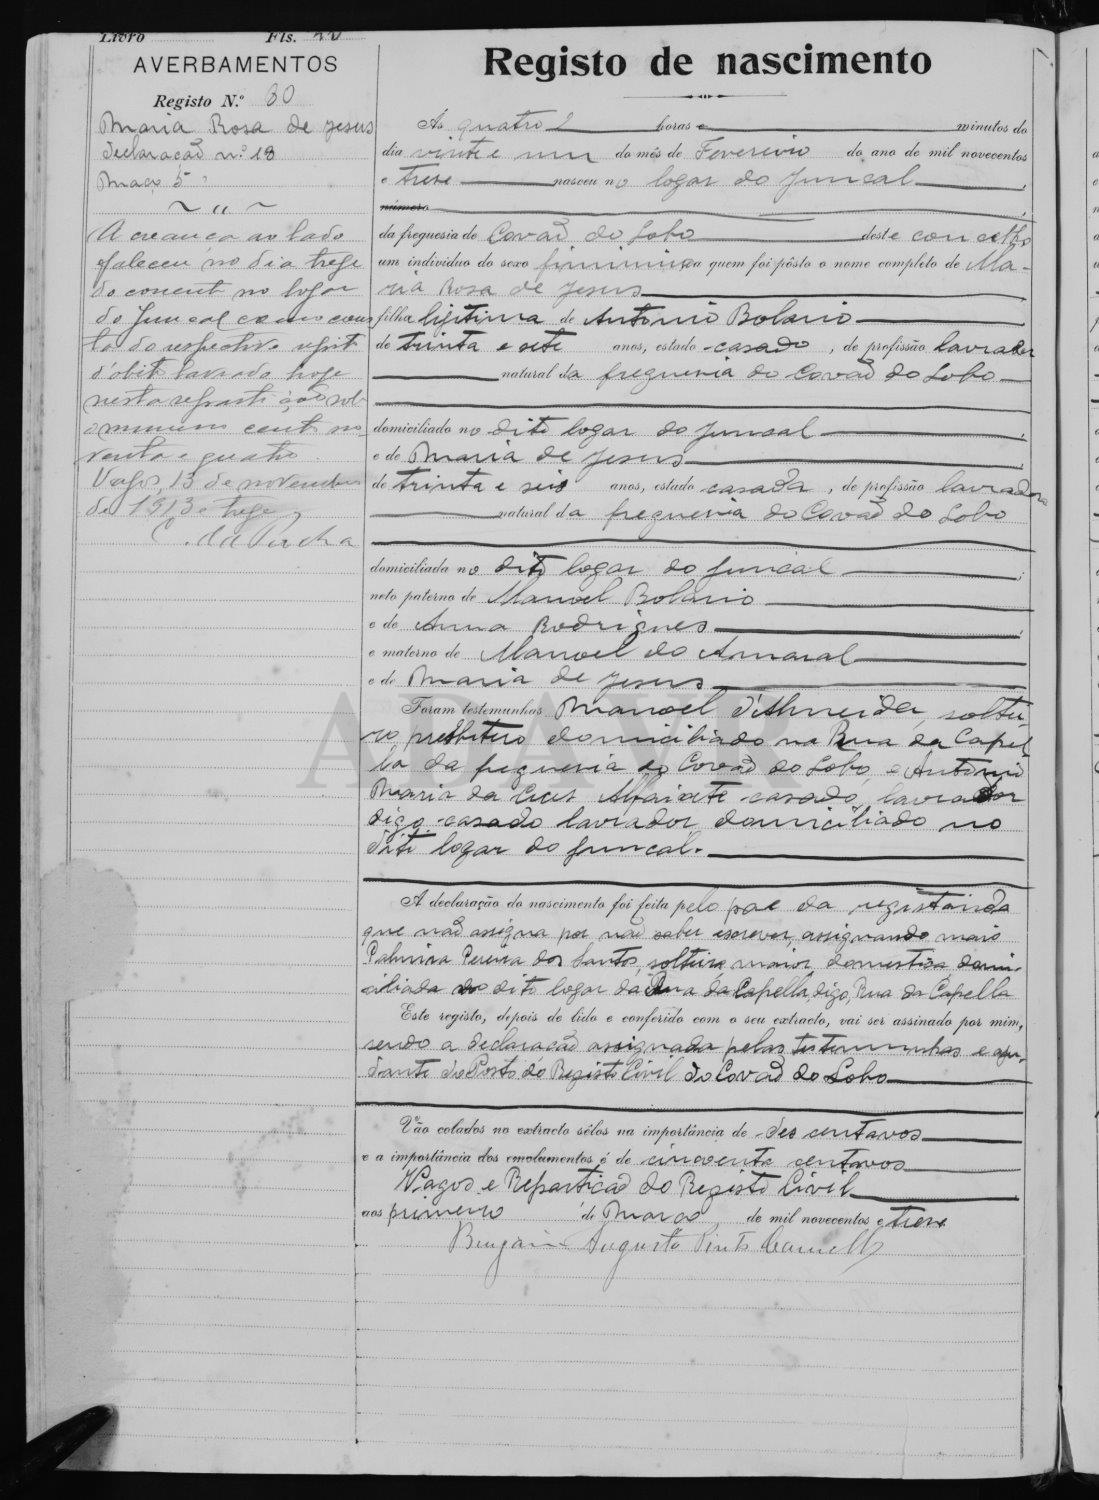 Livro Fls.
AVERBAMENTOS
Registo N.º 80
Maria Rosa de Jesus
declaração n.º 18
Maço 5
~ " ~
A creança ao lado
faleceu no dia treze
do corrent no logar
do Juncal como cons
ta do respectivo regist
d'obito lavrado hoje
nesta repartição sob
o numero cento no
venta e quatro
Vagos, 13 de novembro
de 1913 e treze
C. da Rocha
Registo de nascimento
Ás quatro horas e minutos do
dia vinte e um do mês de Fevereiro do ano de mil novecentos
e trese nasceu no logar do Juncal
número
da freguesia de Covão do Lobo deste concelho
um indivíduo do sexo feminino a quem foi pôsto o nome completo de Ma-
ria Rosa de Jesus
filha ligitima de Antonio Bolario
de trinta e sete anos, estado casado, de profissão lavrador
natural da freguesia do Covão do Lobo
domiciliado no dito logar do Juncal
e de Maria de Jesus
de trinta e seis anos, estado casada, de profissão lavradora
natural da freguesia do Covão do Lobo
domiciliada no dito logar do Juncal
neto paterno de Manoel Bolario
e de Anna Rodrigues
e materno de Manoel do Amaral
e de Maria de Jesus
Foram testemunhas Manoel d'Almeida, soltei-
ro, presbitero domiciliado na Rua da Capel
la da freguesia do Covão do Lobo e Antonio
Maria da Cruz Alfaiate casado, lavrador
digo casado lavrador, domiciliado no
dito logar do Juncal.
A declaração do nascimento foi feita pelo pae da registanda
que não assigna por não saber escrever, assignando mais
Palmira Pereira dos Santos, solteira, maior, domestica domi-
ciliada no dito logar da Rua da Capella, digo, Rua da Capella
Este registo, depois de lido e conferido com o seu extracto, vai ser assinado por mim,
sendo a declaração assignada pelas testemunhas e aju-
dante do Posto do Registo Civil do Covão do Lobo
Vão colados no extracto sêlos na importância de des centavos
e a importância dos emolumentos é de cincoenta centavos
Vagos e Repartição do Registo Civil
aos primeiro de Março de mil novecentos e trese
Benjamin Augusto Pinto
ADAVR